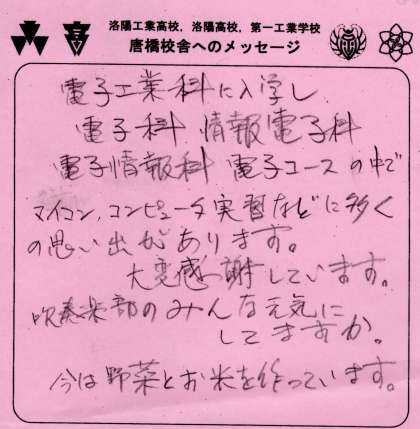 洛陽工業高校，洛陽高校，第一工業学校
唐橋校舎へのメッセージ
高
電子工業科に入学し
電子科 情報電子科
電子情報科 電子コースの中で
マイコン，コンピュータ実習などに多く
の思い出があります。
大変感謝しています。
吹奏楽部のみんな元気に
してますか。
今は野菜とお米を作っています。